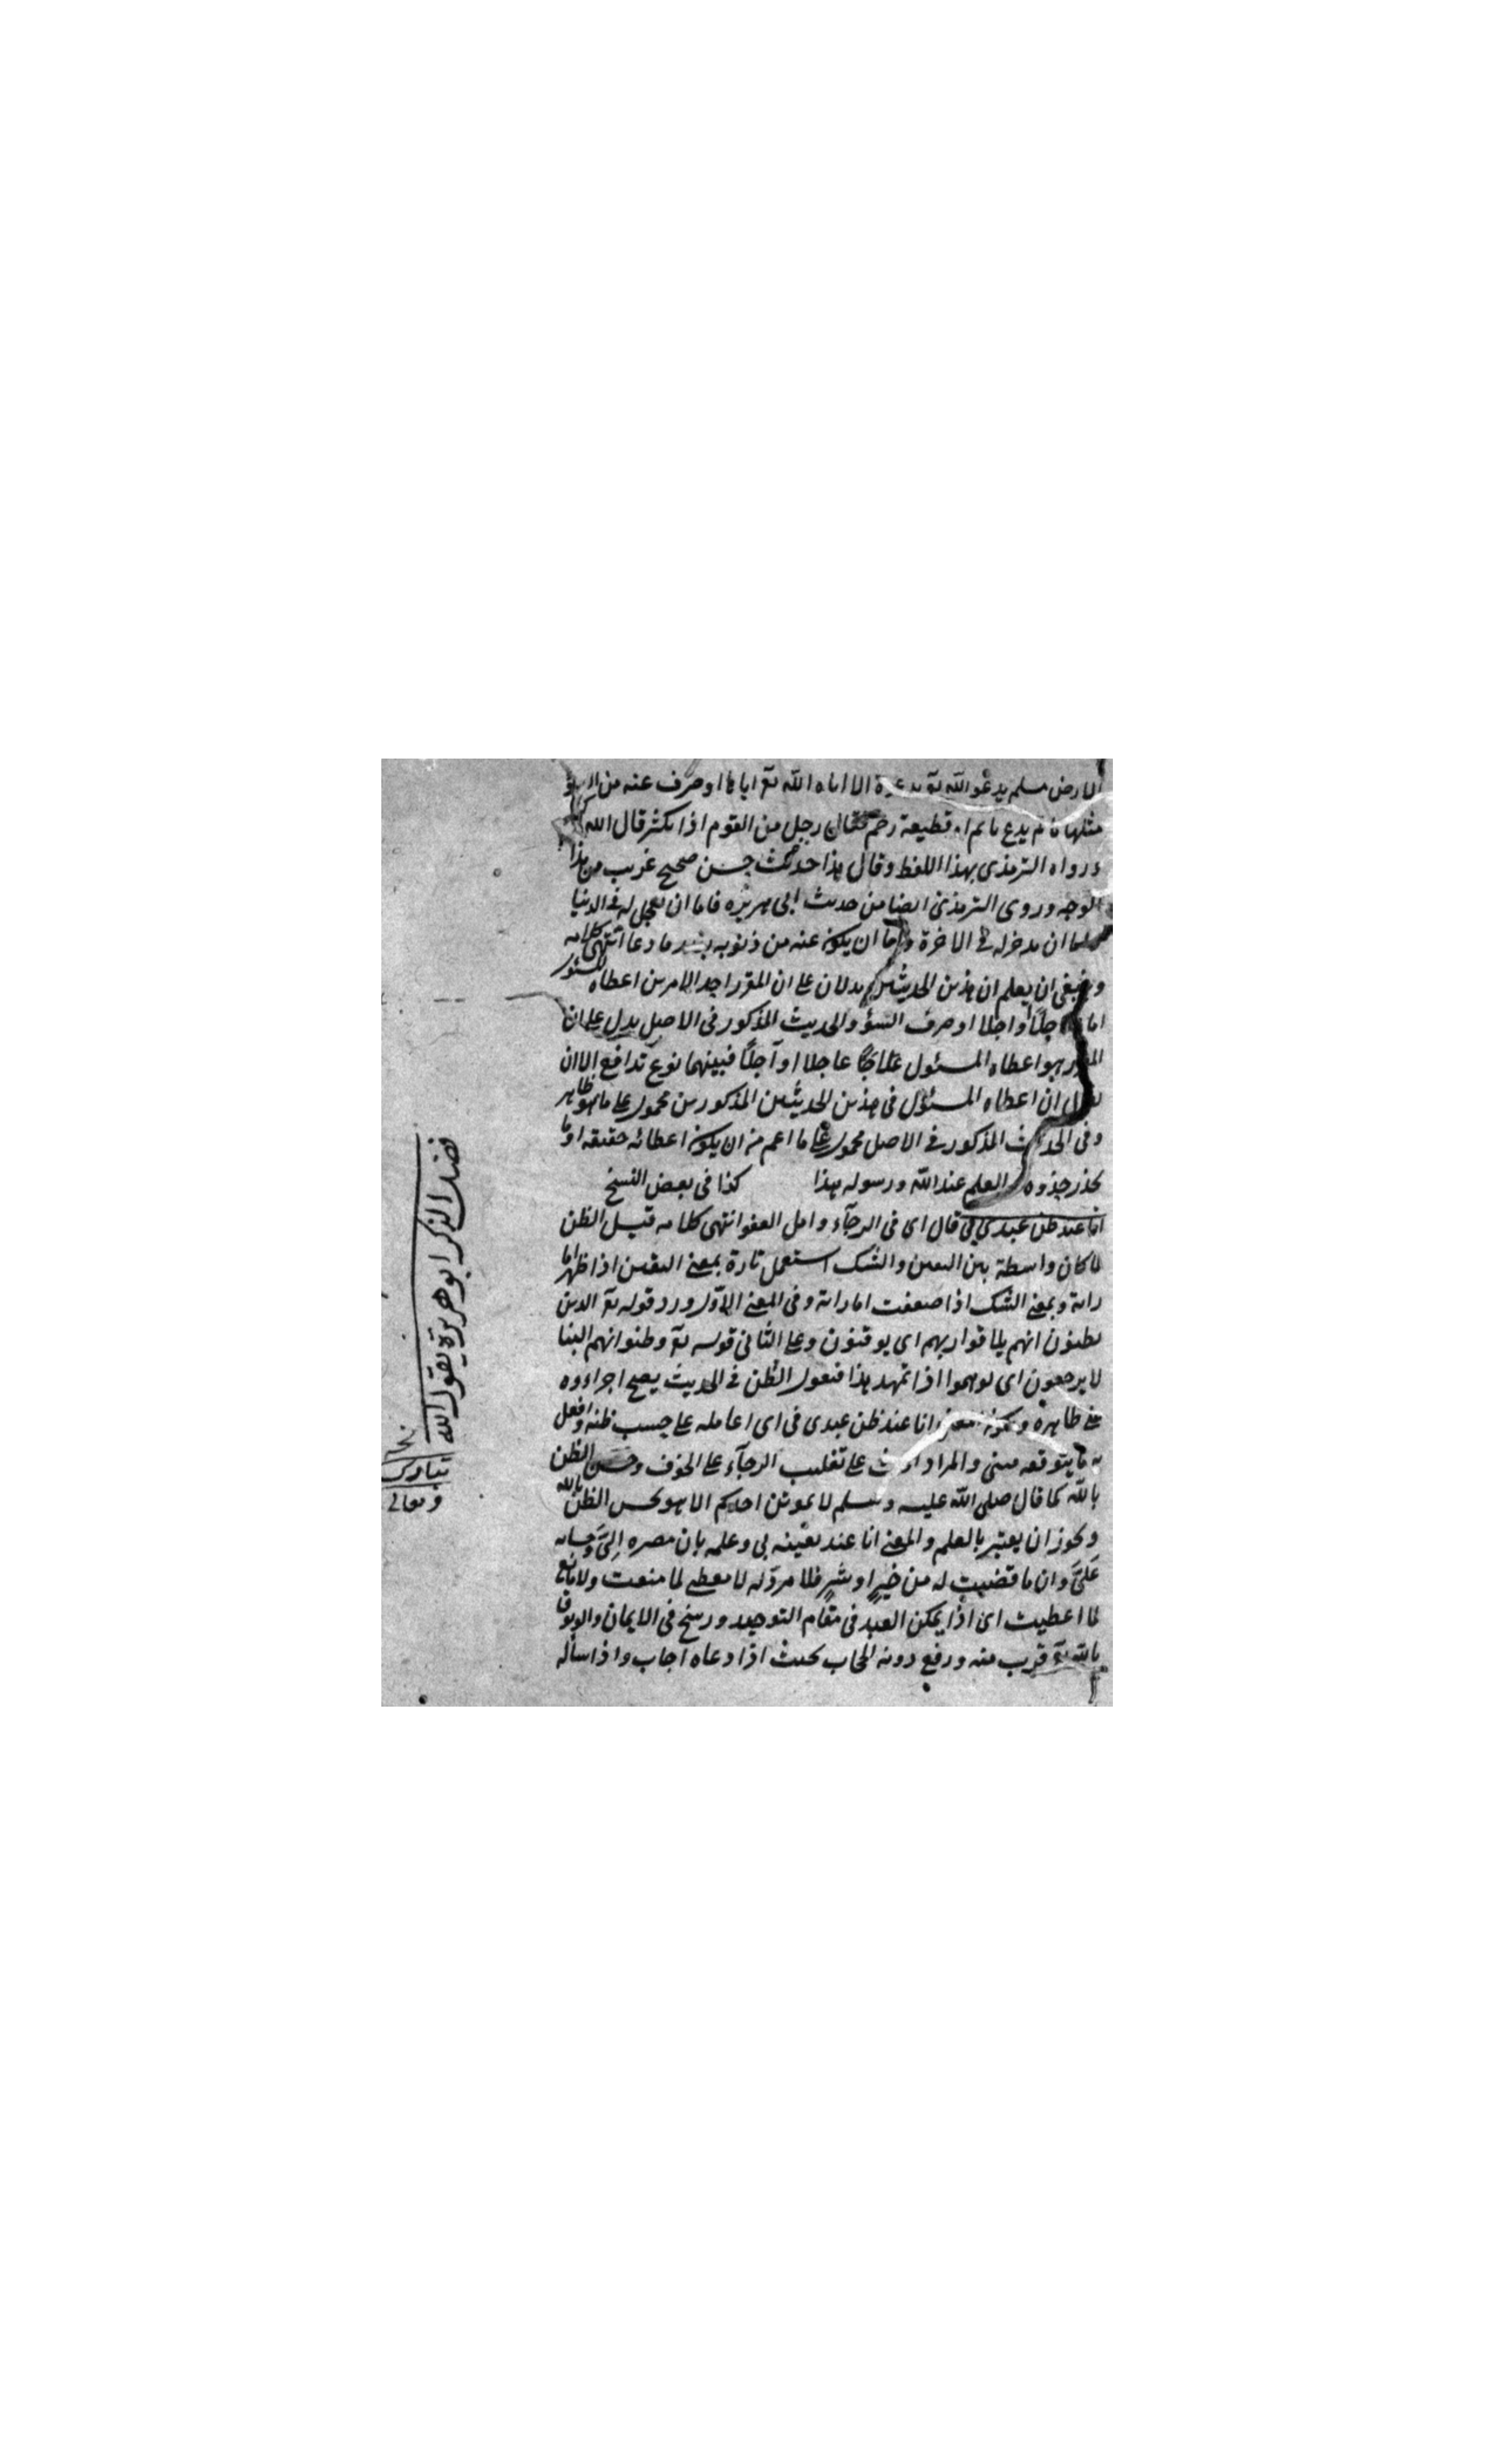 الارض مسلم يدعو الله تع بدعوة الا اتاه الله تع اياها او صرف عنه من السوء
مثلها ما لم يدع باثم او قطيعة رحم فقال رجل من القوم اذا نكثر قال الله اكثر
ورواه الترمذى بهذا اللفظ وقال هذا حديث حسن صحيح غريب من هذا
الوجه وروى الترمذى ايضا من حديث ابى هريرة فاما ان يعجل له فى الدنيا
واما ان يدخر له فى الاخرة واما ان يكفر عنه من ذنوبه بقدر ما دعا انتهى كلامه
وينبغى ان يعلم ان هذين الحديثين يدلان على ان المقرر احد الامرين اعطاء المسئول
اما عاجلا او اجلا او صرف السؤ والحديث المذكور فى الاصل يدل على ان
المقرر هو اعطاء المسئول عاجلا او آجلا فبينهما نوع تدافع الا ان
يقال ان اعطاء المسئول فى هذين الحديثين المذكورين محمول على ما هو ظاهر
وفى الحديث المذكور فى الاصل محمول على ما اعم من ان يكون اعطائه حقيقه او ما
يحذو حذوه والعلم عند الله ورسوله هذا كذا فى بعض النسخ
انا عند ظن عبدي بي قال اى فى الرجآء وامل العفو انتهى كلامه قيل الظن
لما كان واسطة بين اليقين والشك استعمل تارة بمعنى اليقين اذا ظهر اما
راته وبمعنى الشك اذا ضعفت اماراته وفى المعنى الاول ورد قوله تع الذين
يظنون انهم ملاقوا ربهم اى يوقنون وعلى الثانى قوله تع وظنوا انهم الينا
لا يرجعون اى توهموا اذا تمهد هذا فنقول الظن فى الحديث يصح اجراءوه
على ظاهره ويكون المعنى انا عند ظن عبدى فى اى اعامله على حسب ظنه وافعل
به ما يتوقعه منى والمراد الحث على تغليب الرجآء على الخوف وحسن الظن
بالله كما قال صلى الله عليه وسلم لا يموتن احدكم الا هو يحسن الظن بالله
ويجوز ان يعتبر بالعلم والمعنى انا عند يقينه بى وعلمه بان مصيره الىّ وحسابه
علىّ وان ما قضيت له من خير او شر فلا مرد له لا معطى لما منعت ولا مانع
لما اعطيت اى اذا تمكن العبد فى مقام التوحيد ورسخ فى الايمان والوثوق
بالله تع قرب منه ورفع دونه الحجاب بحيث اذا دعاه اجاب واذا ساله
فضل الذكر ابو هريرة يقول الله
تبارك
وتعالى